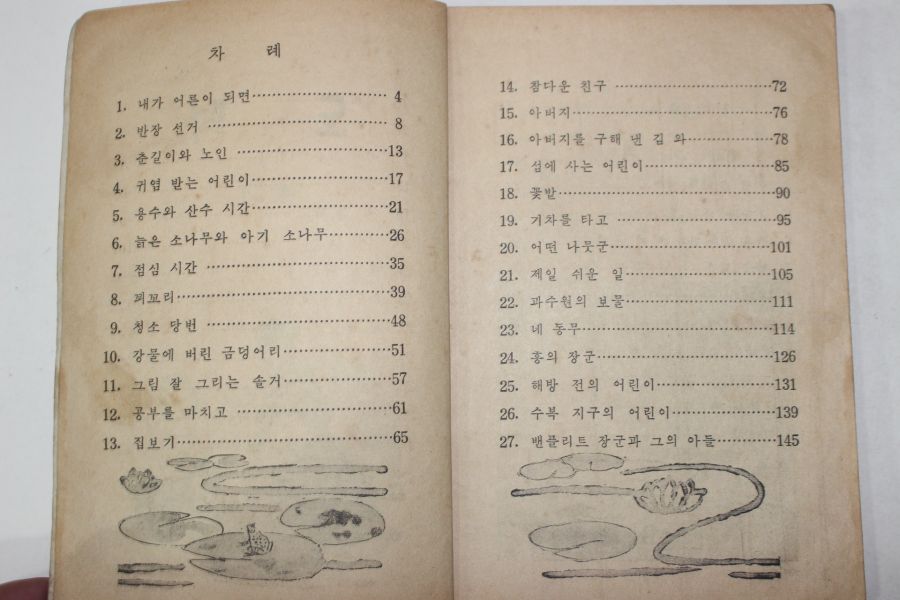 차 례
1. 내가 어른이 되면 4
2. 반장 선거 8
3. 춘길이와 노인 13
4. 귀염 받는 어린이 17
5. 용수와 산수 시간 21
6. 늙은 소나무와 아기 소나무 26
7. 점심 시간 35
8. 꾀꼬리 39
9. 청소 당번 48
10. 강물에 버린 금덩어리 51
11. 그림 잘 그리는 솔거 57
12. 공부를 마치고 61
13. 집보기 65
14. 참다운 친구 72
15. 아버지 76
16. 아버지를 구해 낸 김 와 78
17. 섬에 사는 어린이 85
18. 꽃밭 90
19. 기차를 타고 95
20. 어떤 나뭇군 101
21. 제일 쉬운 일 105
22. 과수원의 보물 111
23. 네 동무 114
24. 흥의 장군 126
25. 해방 전의 어린이 131
26. 수복 지구의 어린이 139
27. 밴플리트 장군과 그의 아들 145